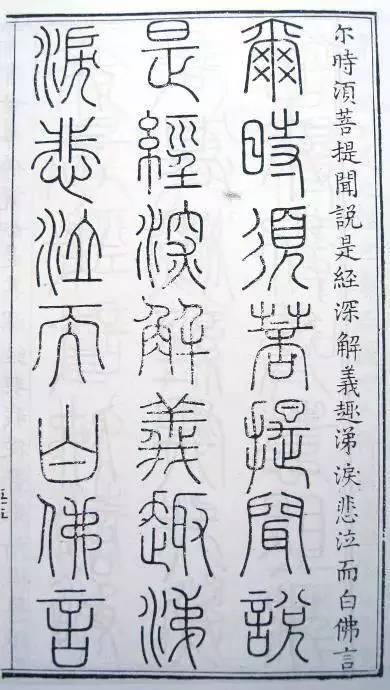 尔時湏菩提聞説是経深解義趣涕淚悲泣而白佛言
爾時須菩提聞說
是經深解義趣涕
淚悲泣而白佛言